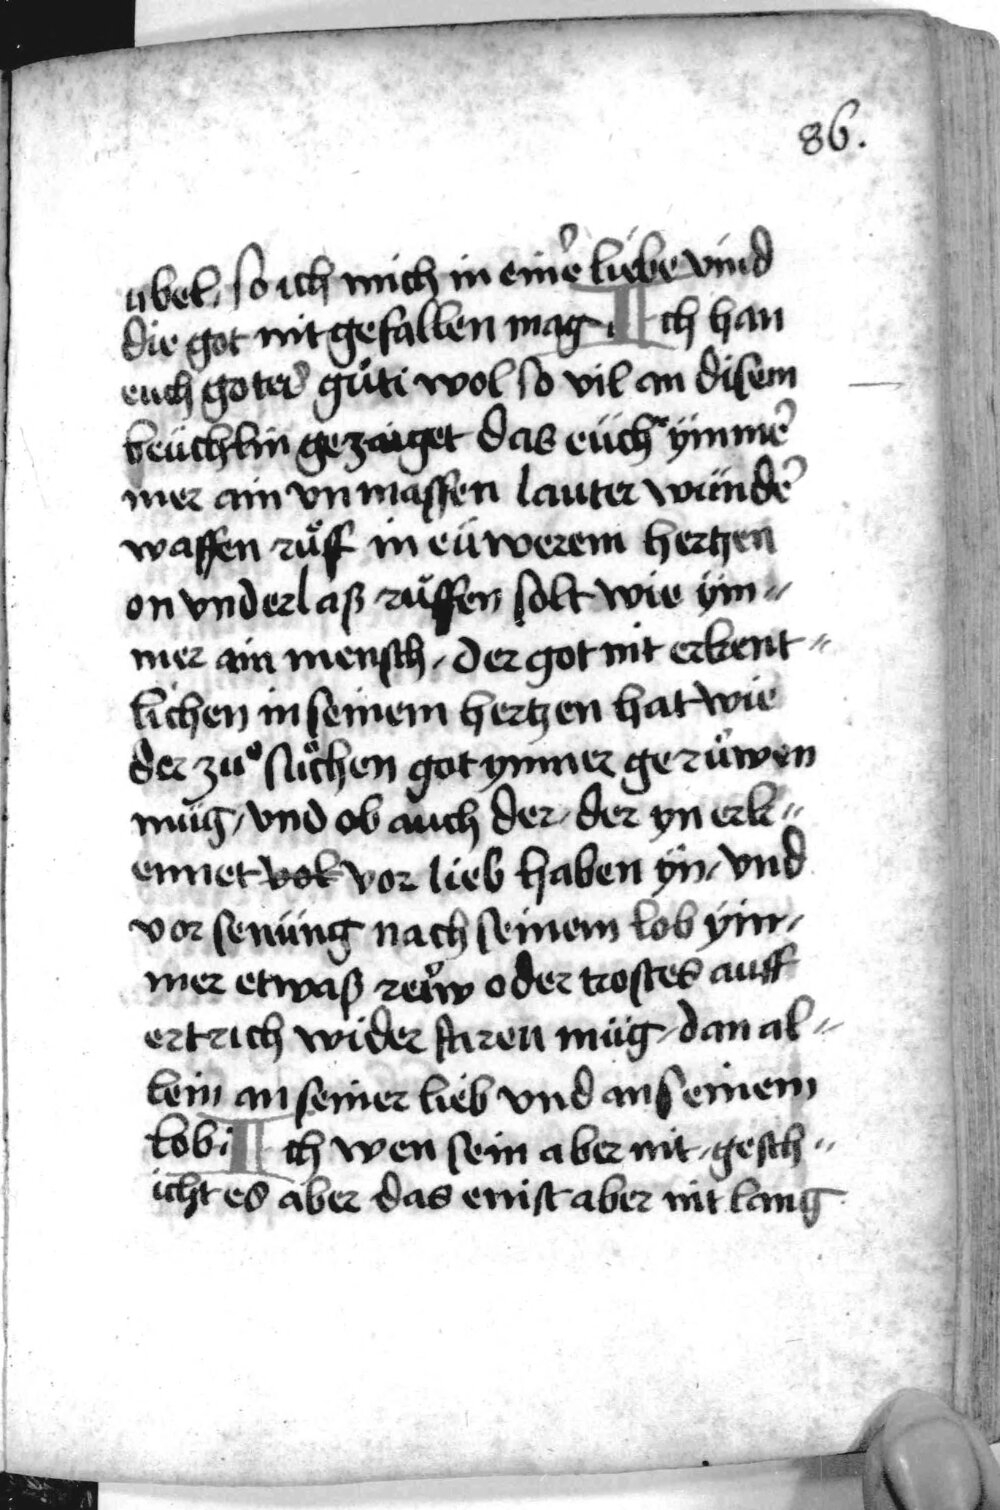 86.
ubel, so ich mich in eine᷑ liebe vind
die got nit gefallen mag Ich han
euch gotes gu̍ti wol so vil an disem
beüchlin gezaiget das eüch ymme᷑
mer ain vnmassen lauter wünde᷑
waffen ru̍ff in eüwerem hertzen
on vnderlaß ru̍ffen solt wie ÿm⸗
mer ain mensch, der got nit erkent⸗
lichen in seinem hertzen hat wie
der zuͦ suͦchen got ymmer geru̍wen
müg, vnd ob auch der, der yn erk⸗
ennet vor lieb haben ÿn, vnd
vor senüng nach seinem lob ÿm,
mer etwaß reu̍w oder trostes auff
ertrich wider faren müg, dan al⸗
lein an seiner lieb vnd an seinem
lob, Ich wen sein aber nit, gesch⸗
icht es aber das enist aber nit lang